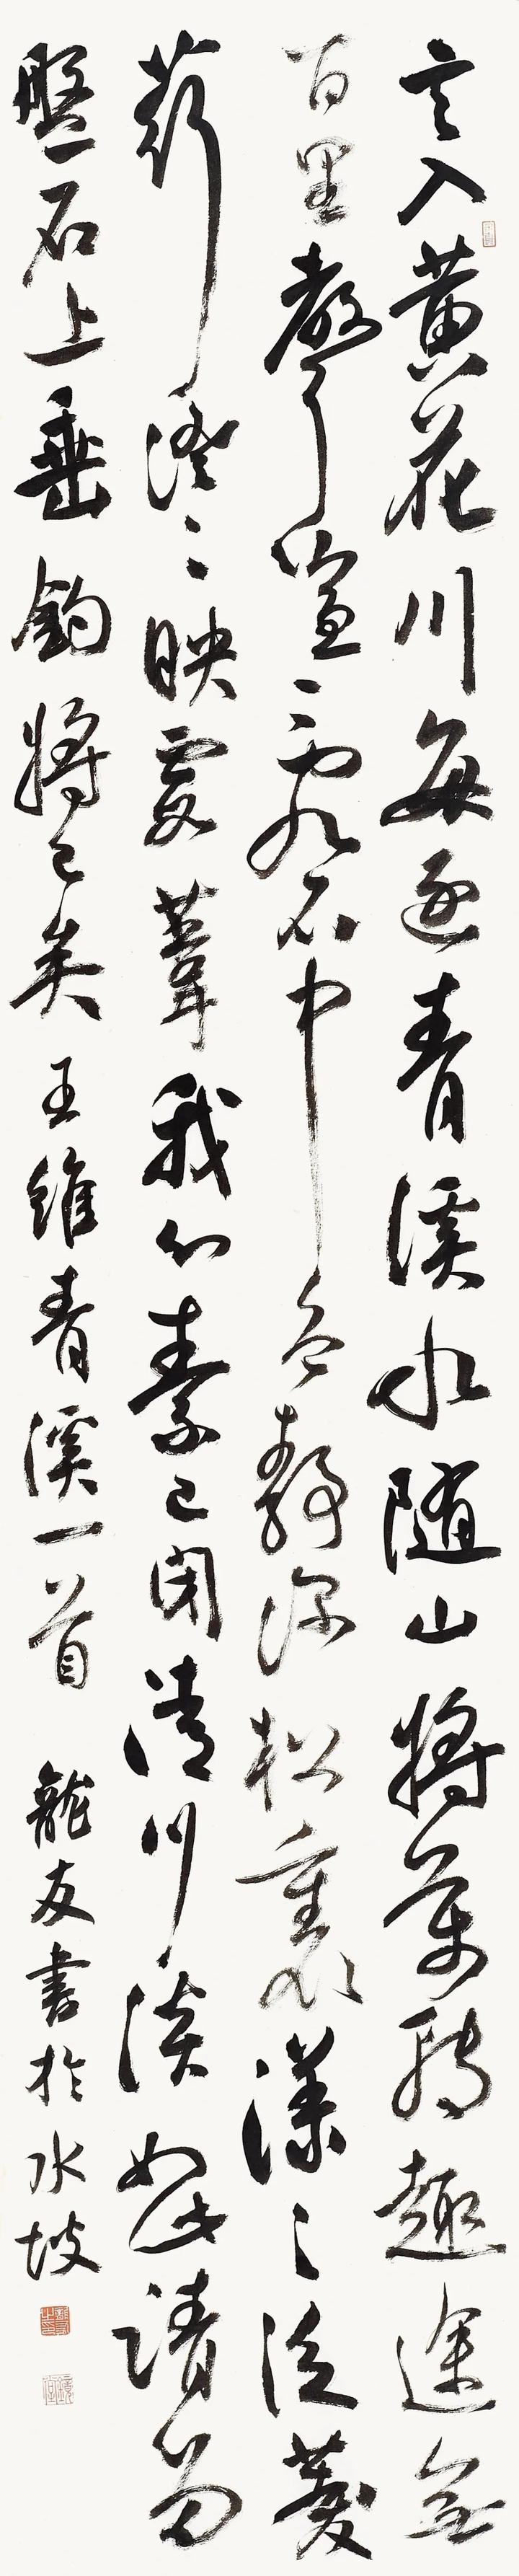 言入黄花川每逐青溪水随山將萬轉趣途無
百里聲喧亂石中色靜深松裏漾〻泛菱
荇澄〻映葭葦我心素已閑清川淡如此請留
盤石上垂釣將已矣 王維青溪一首 龍友書於水坡